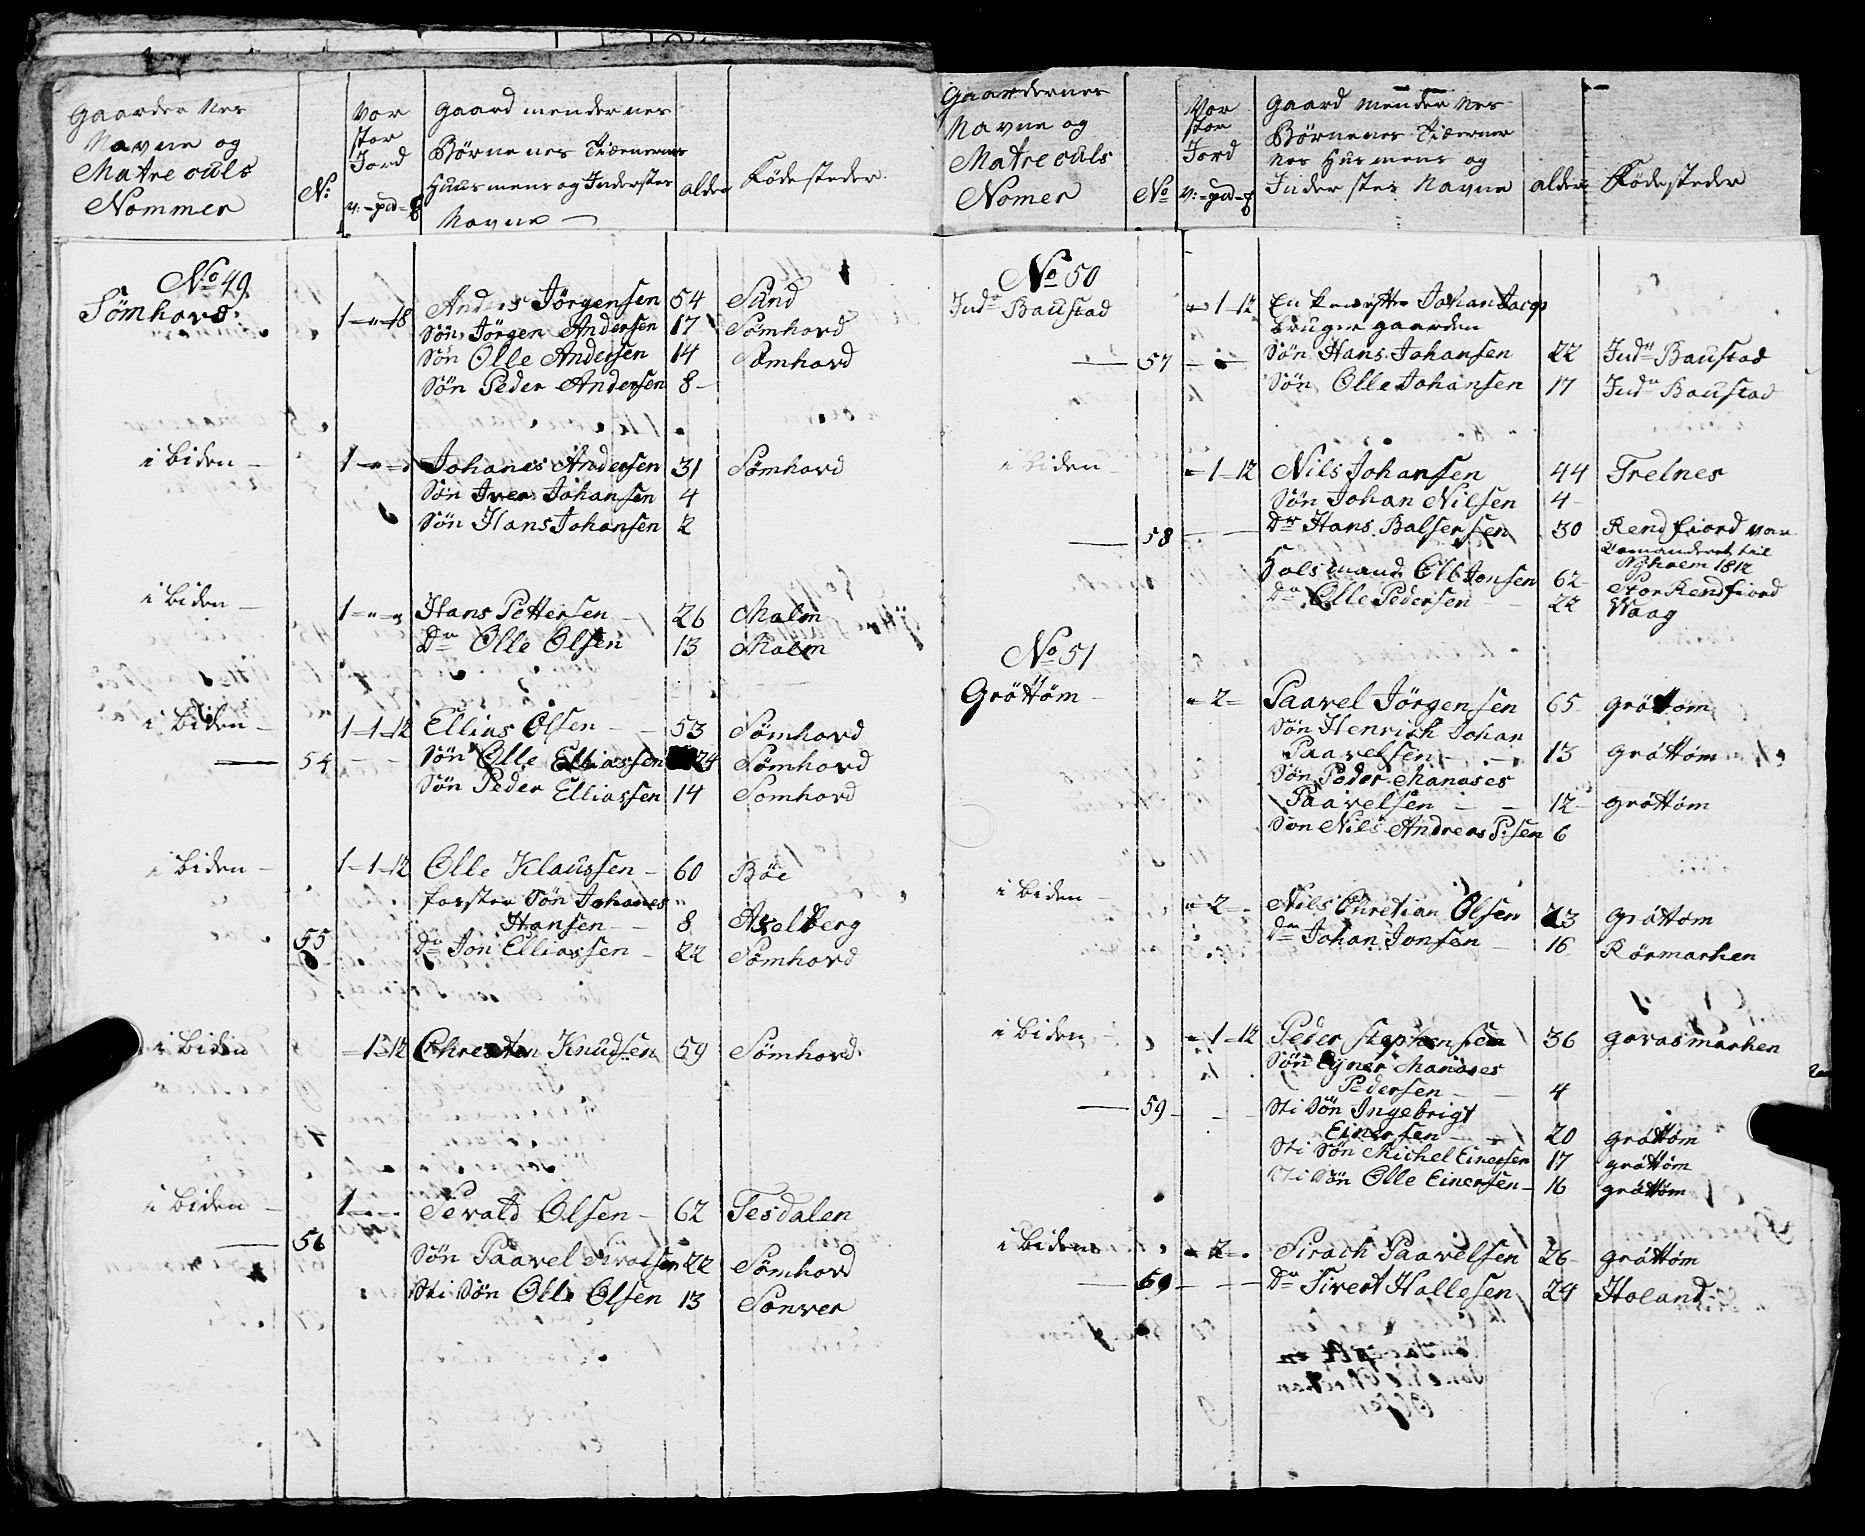 Gaardernes
Navne og
Matreculs
Nommer
No
Vor
stor
Jord
v: - pd - #
gaard mendernes
Børnenes Tiænernes
Huusmens og Inderster
Navne
alder
Føde steder
No 49
Sömhovd
1 - " - 18 Anders Jörgensen 54 Sund
Sön Jörgen Andersen 17 Sömhovd
Sön Olle Andersen 14 Sömhovd
Sön Peder Andersen 8
i biden 1 - " - " Johanes Andersen 31 Sömhovd
Sön Iver Johansen 4
Sön Hans Johansen 2
i biden 1 - " - " Hans Pettersen 26 Malm
Dr Olle Olsen 13 Malm
i biden 1 - 1 - 12 Ellias Olsen 53 Sömhovd
54 Sön Olle Elliassen 24 Sömhovd
Sön Peder Elliassen 14 Sömhovd
i biden 1 - 1 - 12 Olle Klaussen 60 Böe
foster Sön Johanes
Hansen 8 Axelberg
55 Dr Jon Elliassen 22 Sömhovd
i biden - 1 - 12 Chresten Knudsen 59 Sömhovd
i biden 1 - " - Sevald Olsen 62 Tesdalen
56
Sön Paavel 22 Sömhovd
Sti Sön Olle Olsen 13 Sonver
Gaardernes
Navne og
Matreculs
Nomer
No
Vor
stor
Jord
v: - pd - #
gaard mendernes
Børnenes Tiæerner
nes Husmens og
Inderstes Navne
alder
Födesteder
No 50
Indr Baustad " - 1 - 12 Enken effter Johan Jacps
bruger gaarden
57 Sön Hans Johansen 22 Indr Baustad
Sön Olle Johansen 17 Indr Baustad
i biden " - 1 - 12 Nils Johansen 44 Trelnes
Sön Johan Nilsen 4
58 Dr Hans Balsersen 30 Rendfiord var
Comanderet til
Nyholm 1812
Huusmand Olle Jonsen 62 Stor Rendfiord
Dr Olle Pedersen 22 Waag
No 51
Gröttöm " - 2 - Paavel Jörgensen 65 gröttöm
Sön Henrich Johan
Paavelsen 13 gröttöm
Sön Peder Manases
Paavelsen 12 gröttöm
Sön Nils Andreas P:sen 6
i biden " - 2 - Nils Chrestian Olsen 23 gröttom
Dr Johan Jonsen 16 Rörmarken
i biden " - 1 - 12 Peder Stephensen 36 gavasmarken
Sön Ejner Manases
Pedersen 4
59 Sti Sön Ingebrigt
Einersen 20 gröttöm
Sti Sön Michel Einersen 17 gröttöm
Sti Sön Olle Einersen 16 gröttöm
i biden " - 2 - Sirach Paavelsen 26 gröttöm
60 Dr Sivert Hallesen 24 Holand